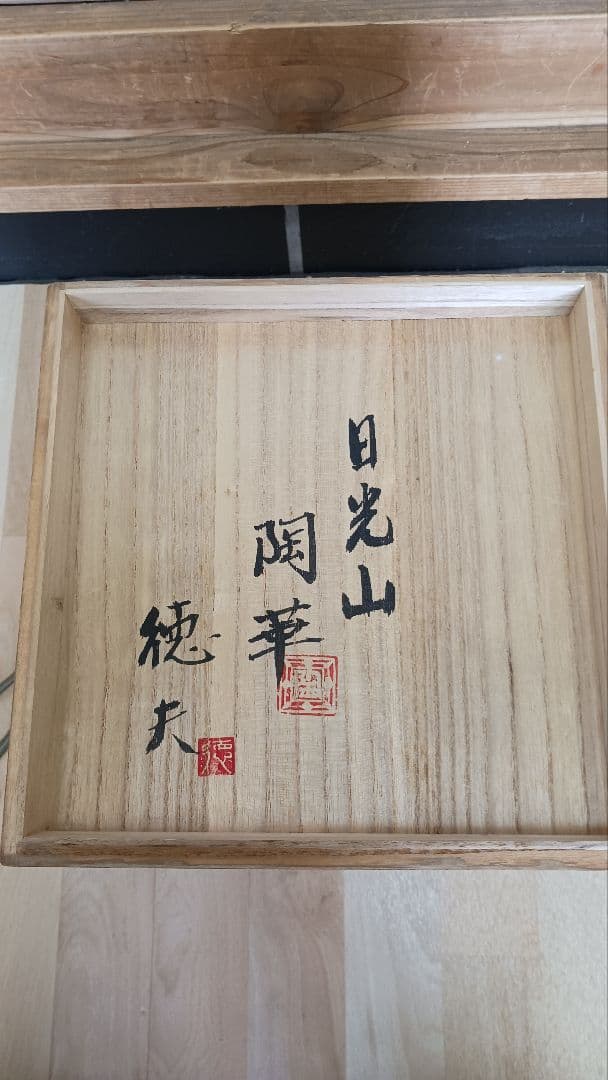 日光山
陶華
徳夫